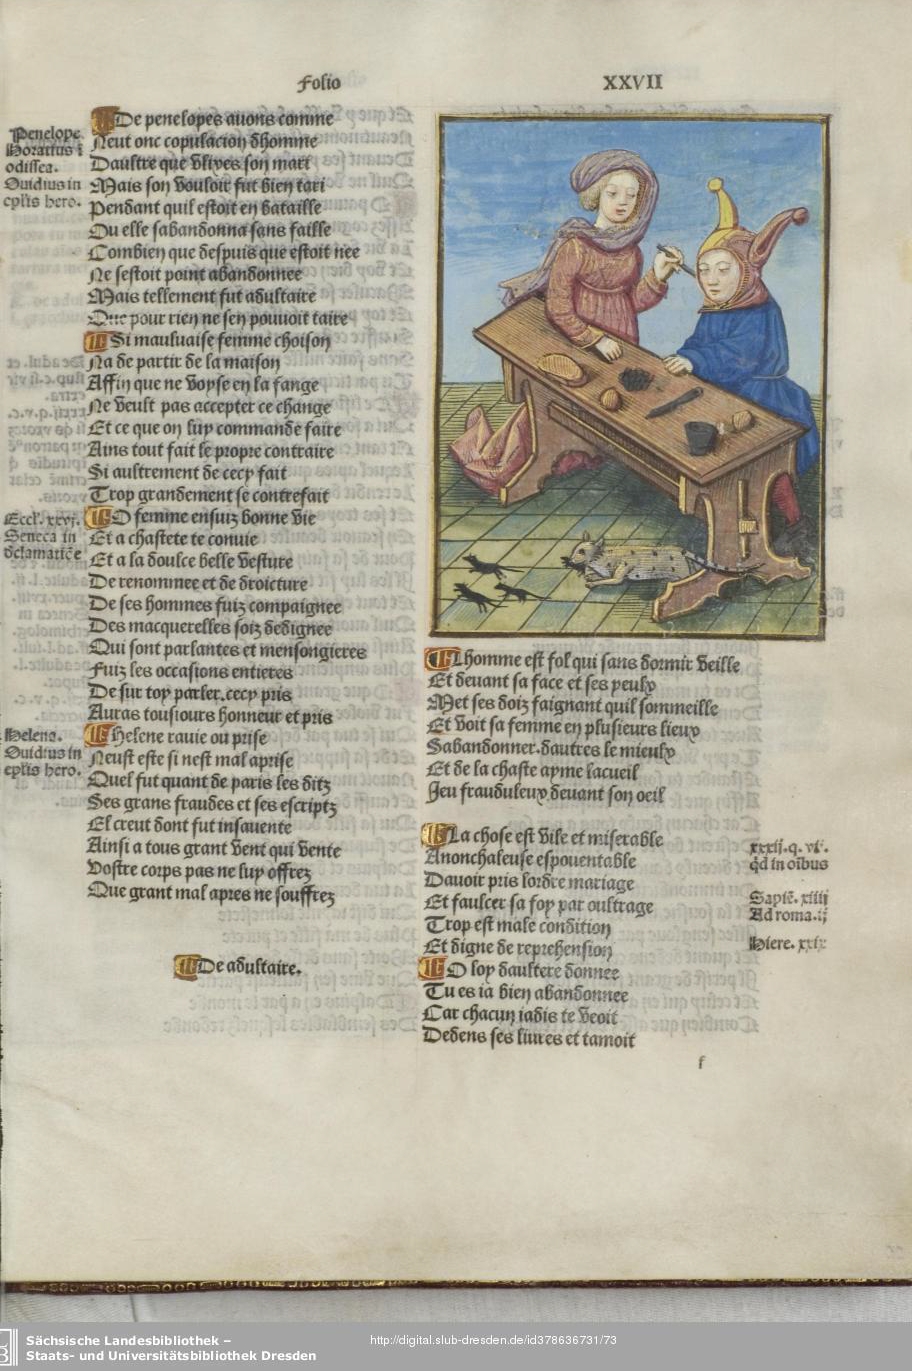 Folio XXVII
De penelopes auons comme
Neut onc copulacion dhomme
Daultre que vlixes son mari
Mais son vouloir fut bien tari
Pendant quil estoit en bataille
Ou elle sabandonna sans faille
Combien que despuis que estoit nee
Ne sestoit point abandonnee
Mais tellement fut adultaire
Que pour rien ne sen pouuoit taire
Si mauluaise femme choison
Na de partir de la maison
Affin que ne voyse en la fange
Ne veult pas accepter ce change
Et ce que on luy commande faire
Ains tout fait le propre contraire
Si aultrement de cecy fait
Trop grandement se contrefait
O femme ensuiz bonne vie
Et a chastete te conuie
Et a la doulce belle vesture
De renommee et de droicture
De ses hommes fuiz compaignee
Des macquerelles soiz dedignee
Qui sont parlantes et mensongieres
Fuiz les occasions entieres
De sur toy parler. cecy pris
Auras tousiours honneur et pris
Helene rauie ou prise
Neust este si nest mal aprise
Quel fut quant de paris les ditz
Ses grans fraudes et ses escriptz
El creut dont fut insauente
Ainsi a tous grant vent qui vente
Vostre corps pas ne luy offrez
Que grant mal apres ne souffrez
De adultaire.
Penelope
Horatius i
odissea.
Ouidius in
eplis hero.
Eccl. xxvi.
Seneca in
declamatiōe
Helena.
Ouidius in
eplis hero.
Lhomme est fol qui sans dormir veille
Et deuant sa face et ses yeulx
Met ses doiz faignant quil sommeille
Et voit sa femme en plusieurs lieux
Sabandonner. dautres le mieulx
Et de la chaste ayme lacueil
Jeu frauduleux deuant son oeil
La chose est vile et miserable
Anonchaleuse espouentable
Dauoir pris lordre mariage
Et faulcer sa foy par oultrage
Trop est male condition
Et digne de reprehension
O loy daultere donnee
Tu es ia bien abandonnee
Car chacun iadis te veoit
Dedens ses liures et tamoit
f
xxxii. q. vi.
qd in oibus
Sapiē. xiiii
Ad roma. ii
Hiere. xxix
Sächsische Landesbibliothek –
Staats- und Universitätsbibliothek Dresden
http://digital.slub-dresden.de/id378636731/73